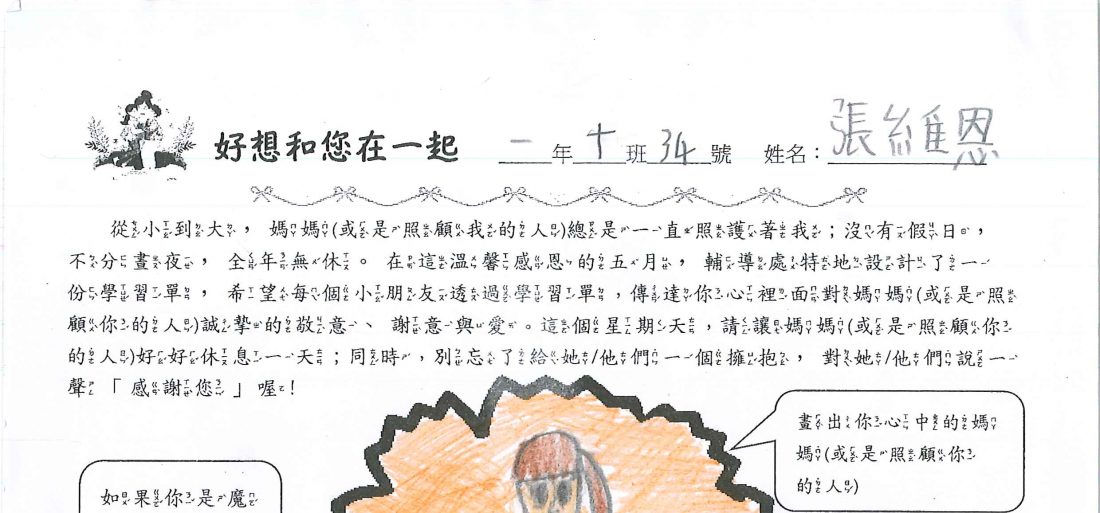 好想和您在一起 一年十班34號 姓名：張維恩
從小到大，媽媽(或是照顧我的人)總是一直照護著我；沒有假日，
不分晝夜，全年無休。在這溫馨感恩的五月，輔導處特地設計了一
份學習單，希望每個小朋友透過學習單，傳達你心裡面對媽媽(或是照
顧你的人)誠摯的敬意、謝意與愛。這個星期天，請讓媽媽(或是照顧你
的人)好好休息一天；同時，別忘了給她/他們一個擁抱，對她/他們說一
聲「感謝您」喔!
畫出你心中的媽
媽(或是照顧你
的人)
如果你是魔